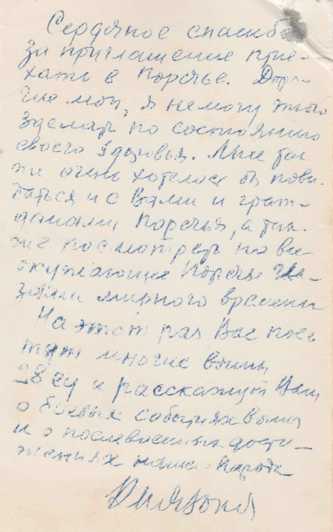 Сердечное спасибо
за приглашение прие-
хать в Поречье. Доро-
гие мои, я не могу этого
сделать по состоянию
своего здоровья. Мне так
же очень хотелось бы пови-
даться и с Вами и граж-
данами Поречья, а так-
же посмотреть на
Поречье
мирного времени
На этот раз Вас посе-
тят многие воины
и расскажут Вам
о боевых событиях войны
и о послевоенных дости-
жениях наше народа